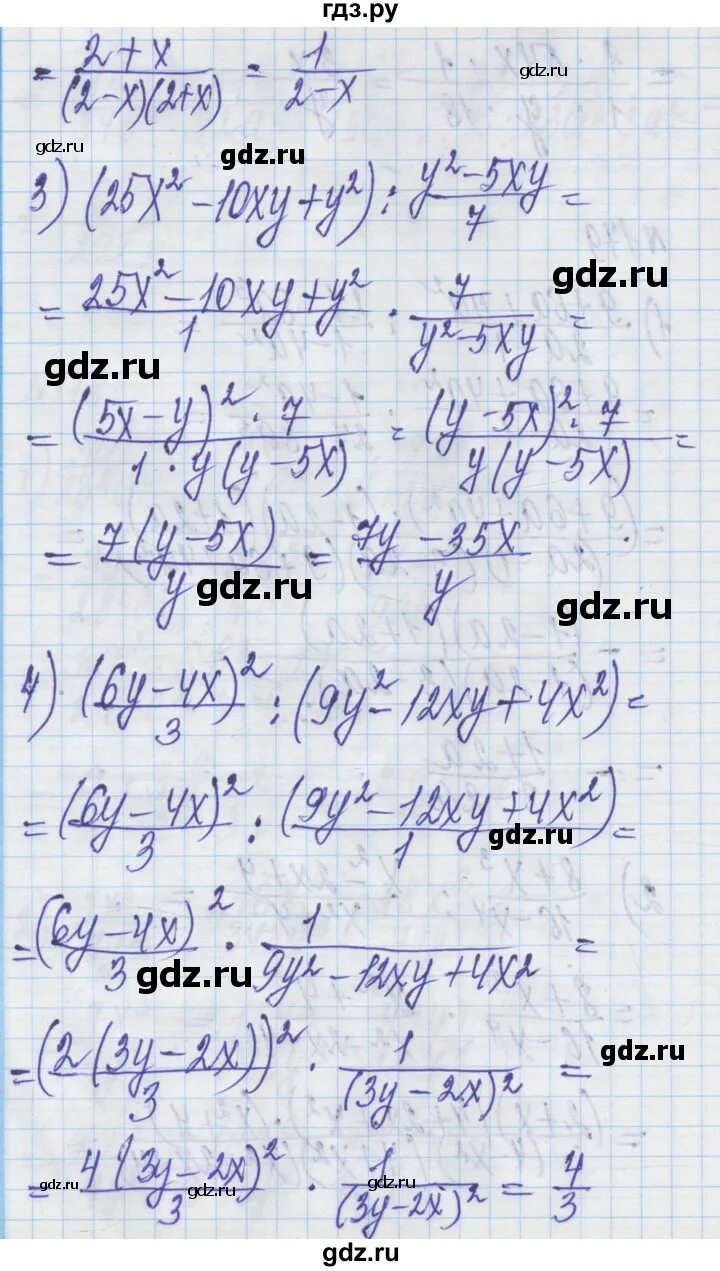 гдз.ру
= (2+x)/((2-x)(2+x)) = 1/(2-x)
gdz.ru
gdz.ru
gdz.ru
3) (25x² - 10xy + y²) : (y² - 5xy)/7 =
gdz.ru
= (25x² - 10xy + y²)/1 · 7/(y² - 5xy) =
gdz.ru
= ((5x - y)² · 7)/(1 · y(y - 5x)) = ((y - 5x)² · 7)/(y(y - 5x)) =
= 7(y - 5x)/y = (7y - 35x)/y
gdz.ru
gdz.ru
4) (6y - 4x)²/3 : (9y² - 12xy + 4x²) =
= (6y - 4x)²/3 : (9y² - 12xy + 4x²)/1 =
gdz.ru
= (6y - 4x)²/3 · 1/(9y² - 12xy + 4x²) =
gdz.ru
= (2(3y - 2x))²/3 · 1/(3y - 2x)² =
gdz.ru
= 4(3y - 2x)²/3 · 1/(3y - 2x)² = 4/3
gdz.ru
gdz.ru
gdz.ru
gdz.ru